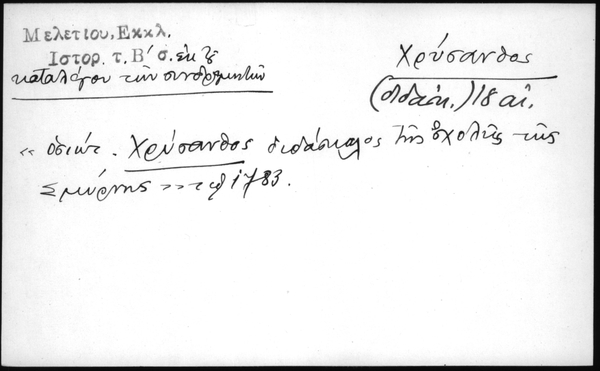 Μελετίου, Εκκλ.
Ιστορ. τ. Β' σ. εκ
καταλόγου τῶν συνδρομητῶν
Χρύσανθος
(διδάσκ.) 18 αἰ.
« ὁσιώτ. Χρύσανθος διδάσκαλος τῆς σχολῆς τῆς
Σμύρνης » τῷ 1783.